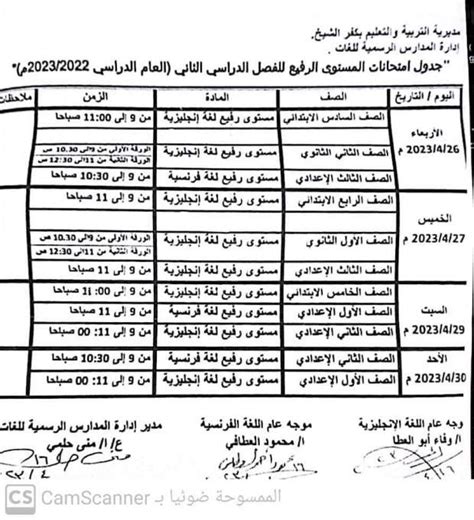 مديرية التربية والتعليم بكفر الشيخ.
إدارة المدارس الرسمية للغات .
"جدول امتحانات المستوى الرفيع للفصل الدراسي الثاني (العام الدراسي 2023/2022م)"
اليوم / التاريخ الصف المادة الزمن ملاحظات
الأربعاء 2023/4/26 م
الصف السادس الابتدائي مستوى رفيع لغة إنجليزية من 9 إلى 11:00 صباحا
الصف الثاني الثانوي مستوى رفيع لغة إنجليزية الورقة الأولى من 9الى 10.30 ص
الورقة الثانية من 11الى 12:30 ص
الصف الثالث الإعدادي مستوى رفيع لغة إنجليزية من 9 إلى 10:30 صباحا
الخميس 2023/4/27 م
الصف الرابع الابتدائي مستوى رفيع لغة إنجليزية من 9 إلى 11 صباحا
الصف الأول الثانوي مستوى رفيع لغة إنجليزية الورقة الأولى من 9الى 10.30 ص
الورقة الثانية من 11الى 12:30 ص
الصف الثالث الإعدادي مستوى رفيع لغة فرنسية من 9 إلى 11 صباحا
السبت 2023/4/29 م
الصف الخامس الابتدائي مستوى رفيع لغة إنجليزية من 9 إلى 11:00 صباحا
الصف الأول الإعدادي مستوى رفيع لغة فرنسية من 9 إلى 11 صباحا
الصف الثاني الإعدادي مستوى رفيع لغة إنجليزية من 9 إلى 11: 00 صباحا
الأحد 2023/4/30 م
الصف الثاني الإعدادي مستوى رفيع لغة فرنسية من 9 إلى 10:30 صباحا
الصف الأول الإعدادي مستوى رفيع لغة إنجليزية من 9 إلى 11: 00 صباحا
وجه عام اللغة الإنجليزية موجه عام اللغة الفرنسية مدير إدارة المدارس الرسمية للغات
أ/ وفاء أبو العطا أ/ محمود العطافي ع/ أ/ منى حلمي
CS الممسوحة ضوئيا بـ CamScanner